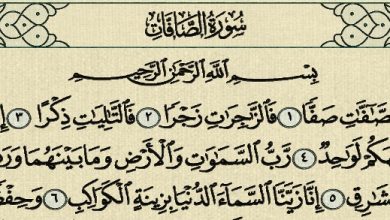 سُورَةُ الصَّافَّاتِ
بِسْمِ ٱللَّهِ ٱلرَّحْمَٰنِ ٱلرَّحِيمِ
صَّٰٓفَّٰتِ صَفًّا ١ فَٱلزَّٰجِرَٰتِ زَجْرًا ٢ فَٱلتَّٰلِيَٰتِ ذِكْرًا ٣
كُمْ لَوَٰحِدٌ ٤ رَّبُّ ٱلسَّمَٰوَٰتِ وَٱلْأَرْضِ وَمَا بَيْنَهُمَا وَرَ
شَٰرِقِ ٥ إِنَّا زَيَّنَّا ٱلسَّمَآءَ ٱلدُّنْيَا بِزِينَةٍ ٱلْكَوَاكِبِ ٦ وَحِفْظ